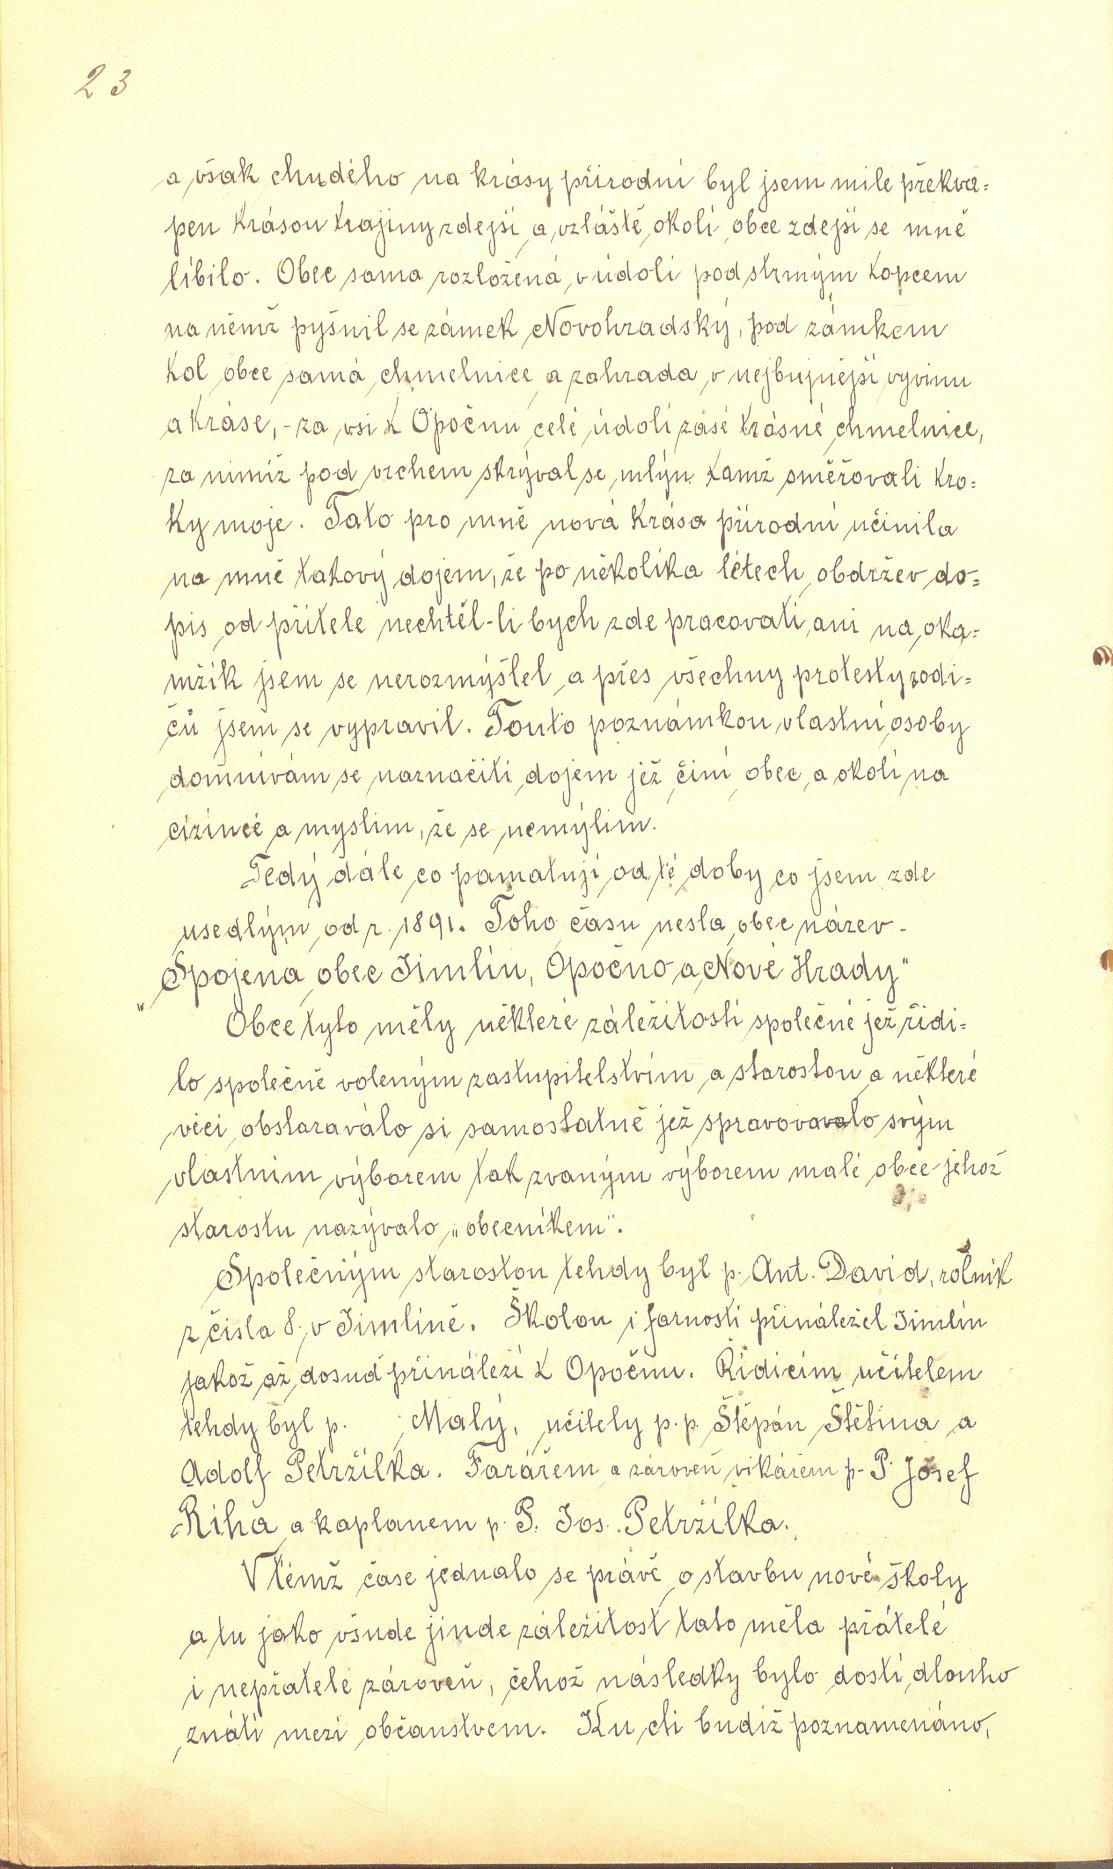 23
a však chudého na krásy přírodní byl jsem mile překva=
pen krásou krajiny zdejší a vzláště okolí obce zdejší se mně
líbilo. Obec sama rozložená v údolí pod strmým kopcem
na němž pyšnil se zámek Novohradský, pod zámkem
kol obce samá chmelnice a zahrada v nejbujnější vyvinu
a kráse, - za vsí k Opočnu celé údolí zásé krásné chmelnice,
za nimiž pod vrchem skrýval se mlýn kamž směřovali kro=
ky moje. Tato pro mně nová krása přírodní učinila
na mně takový dojem, že po několika létech obdržev do=
pis od přítele nechtěl-li bych zde pracovati, ani na oka=
mžik jsem se nerozmýšlel a přes všechny protesty rodi=
čů jsem se vypravil. Touto poznámkou vlastní osoby
domnívám se naznačiti dojem jež činí obec a okolí na
cizincé a myslím, že se nemýlím.
Tedý dále co pamatují od té doby co jsem zde
usedlým od r. 1891. Toho času nesla obec název -
„Spojená obec Jimlín, Opočno a Nové Hrady"
Obce tyto měly některé záležitosti společné jež řídi=
lo společně voleným zastupitelstvím a starostou a některé
věci obstaraválo si samostatně jež spravovavalo svým
vlastním výborem tak zvaným výborem malé obce jehož
starostu nazývalo „obecníkem".
Společným starostou tehdy byl p. Ant. David, rolník
z čísla 8. v Jimlíně. Školou i farností přináležel Jimlín
jakož až dosud přináleží k Opočnu. Řidícím učitelem
tehdy byl p. Malý, učitely p. p. Štěpán Štětina a
Adolf Petržílka. Farářem a zároveň vikářem p. P. Josef
Říha a kaplanem p. P. Jos. Petržílka.
V témž čase jednalo se právě o stavbu nové školy
a tu jako všude jinde záležitost tato měla přátelé
i nepřatele zároveň, čehož následky bylo dosti dlouho
znáti mezi občanstvem. Ku cti budiž poznamenáno,